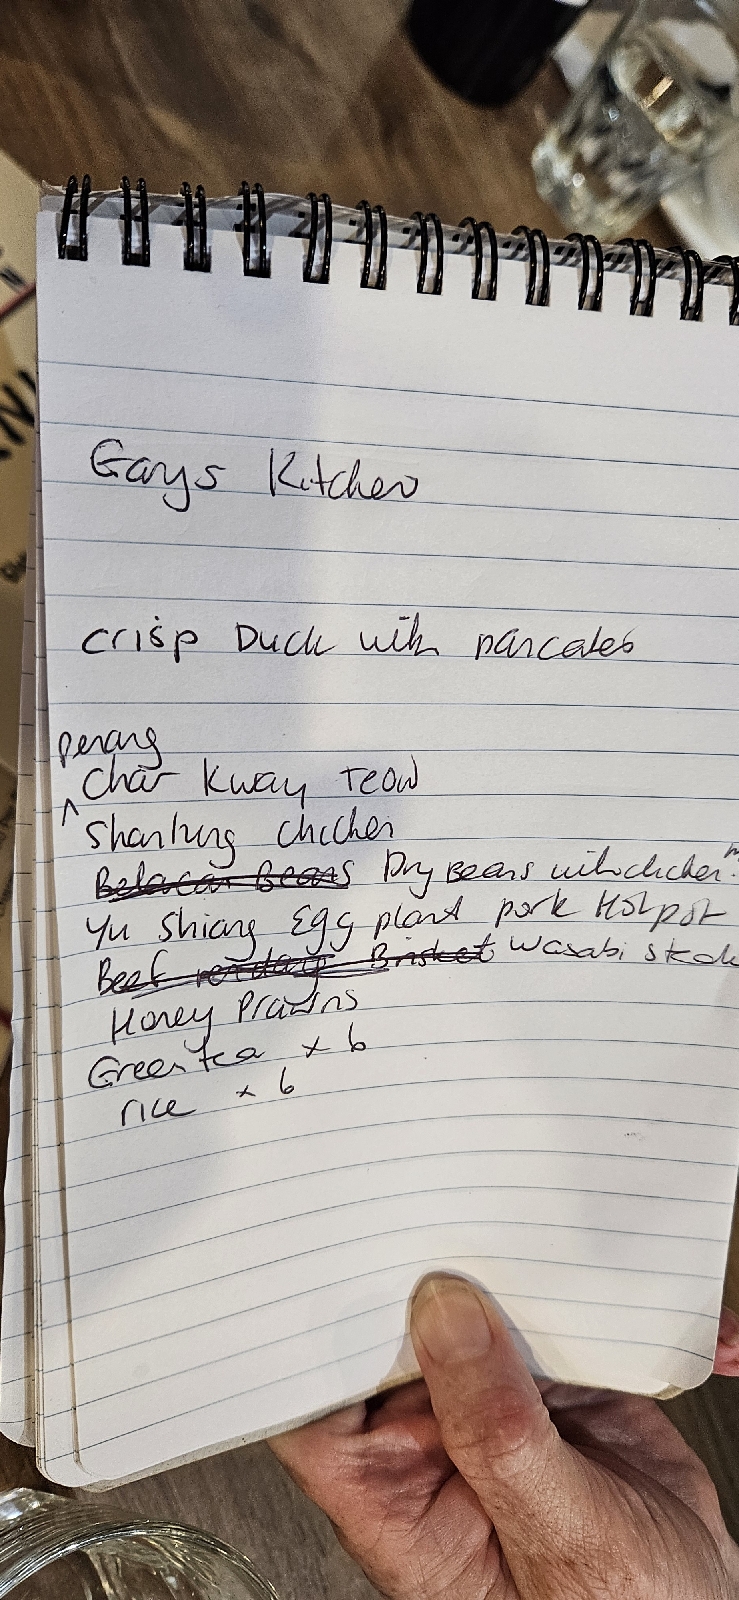 Gays Kitchen
crisp Duck with pancakes
penang
^ Char Kway Teow
Shantung chicken
Belacan Beans Dry Beans with chicken
Yu Shiang Egg plant pork Hotpot
Beef rendang Brisket Wasabi steak
Honey Prawns
Green tea x 6
rice x 6